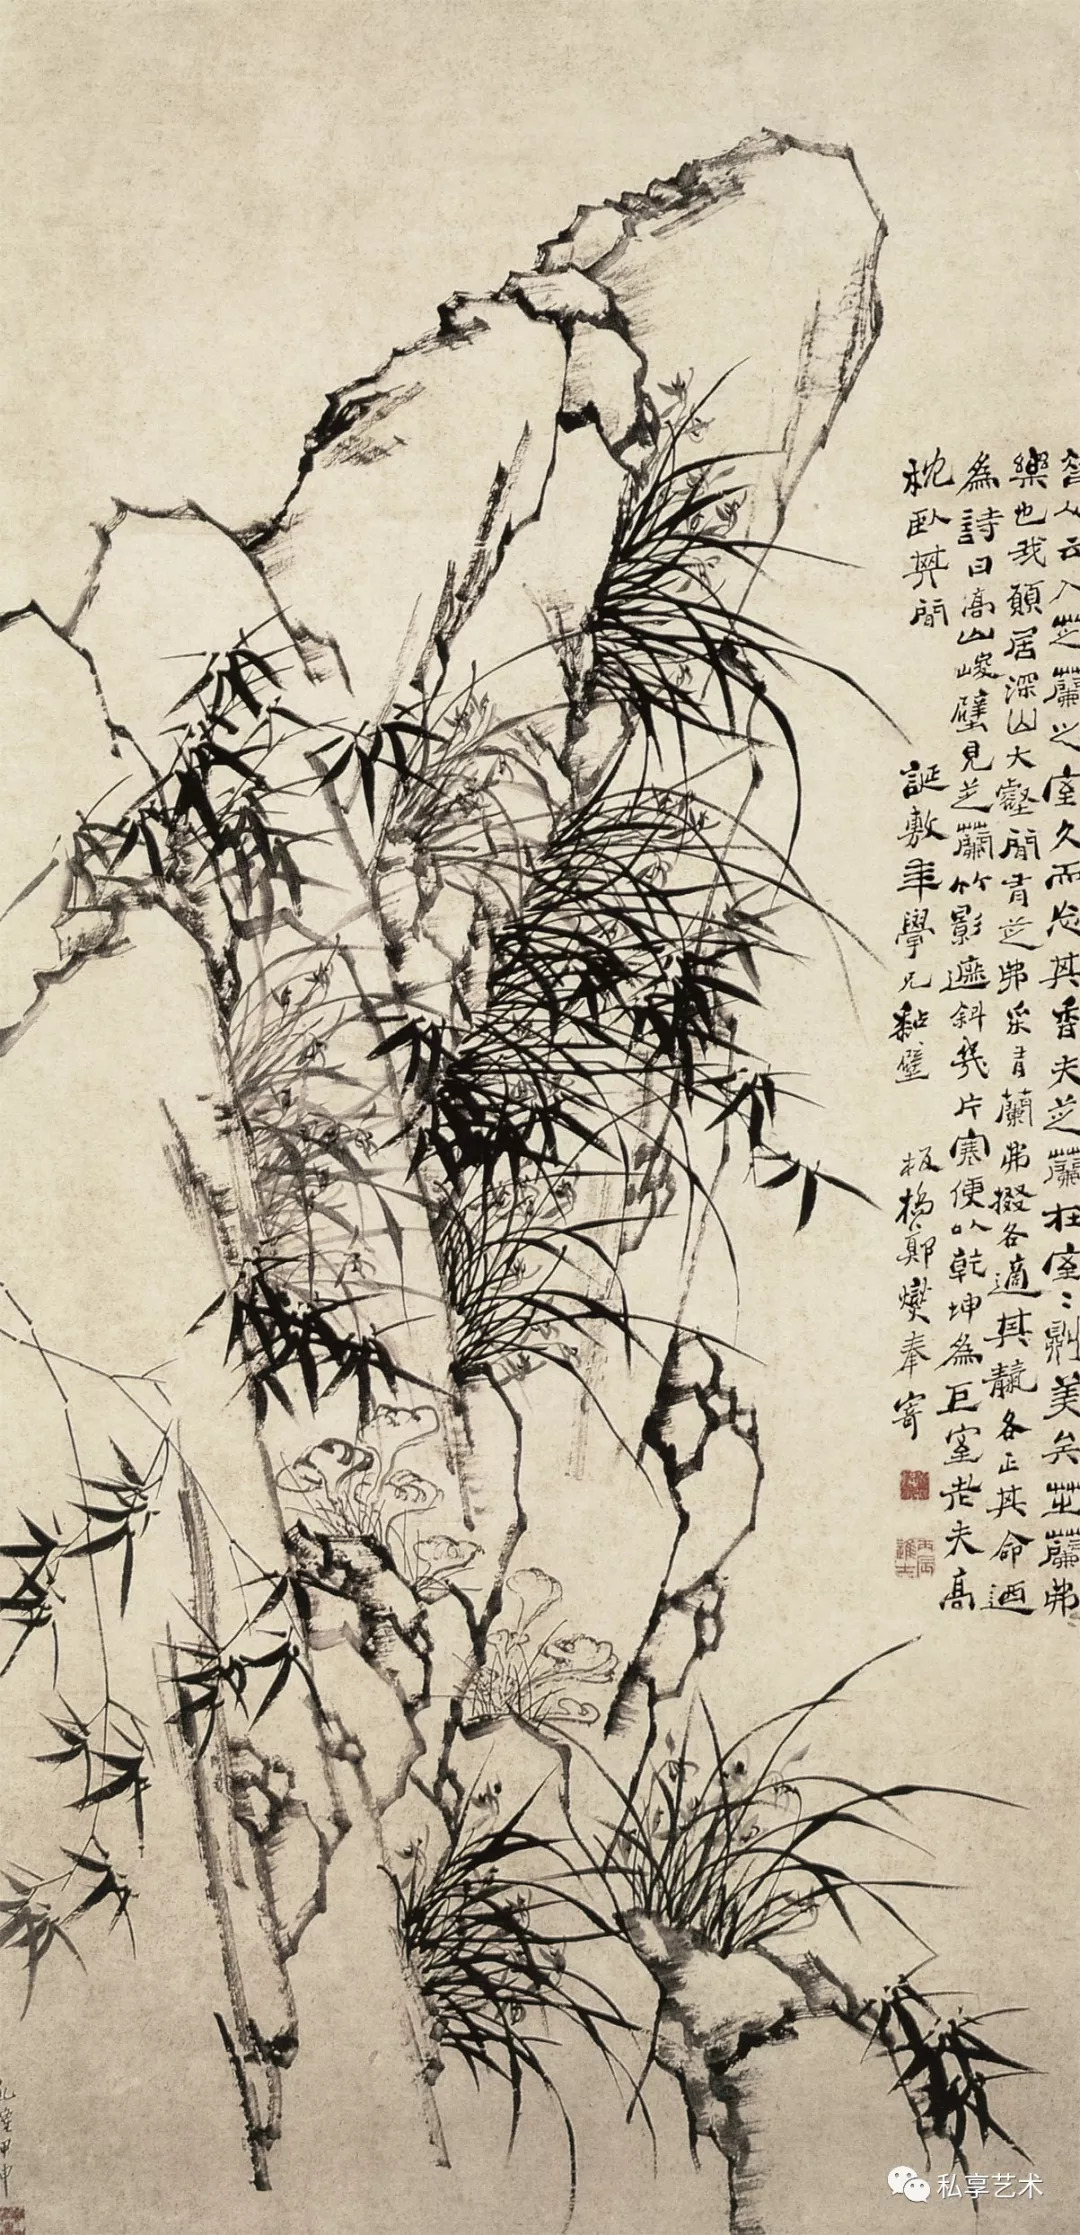 昔人云入芝蘭之室久而忘其香夫芝蘭在室〻則美矣芝蘭弗
樂也我願居深山大壑間有芝弗采有蘭弗掇各適其靝各正其命迺
為詩曰高山峻壁見芝蘭竹影遮斜幾片寒便以乾坤為巨室老夫高
枕臥其間 誕敷年學兄黏壁 板橋鄭燮奉寄
丙辰進士
乾隆甲申
私享艺术